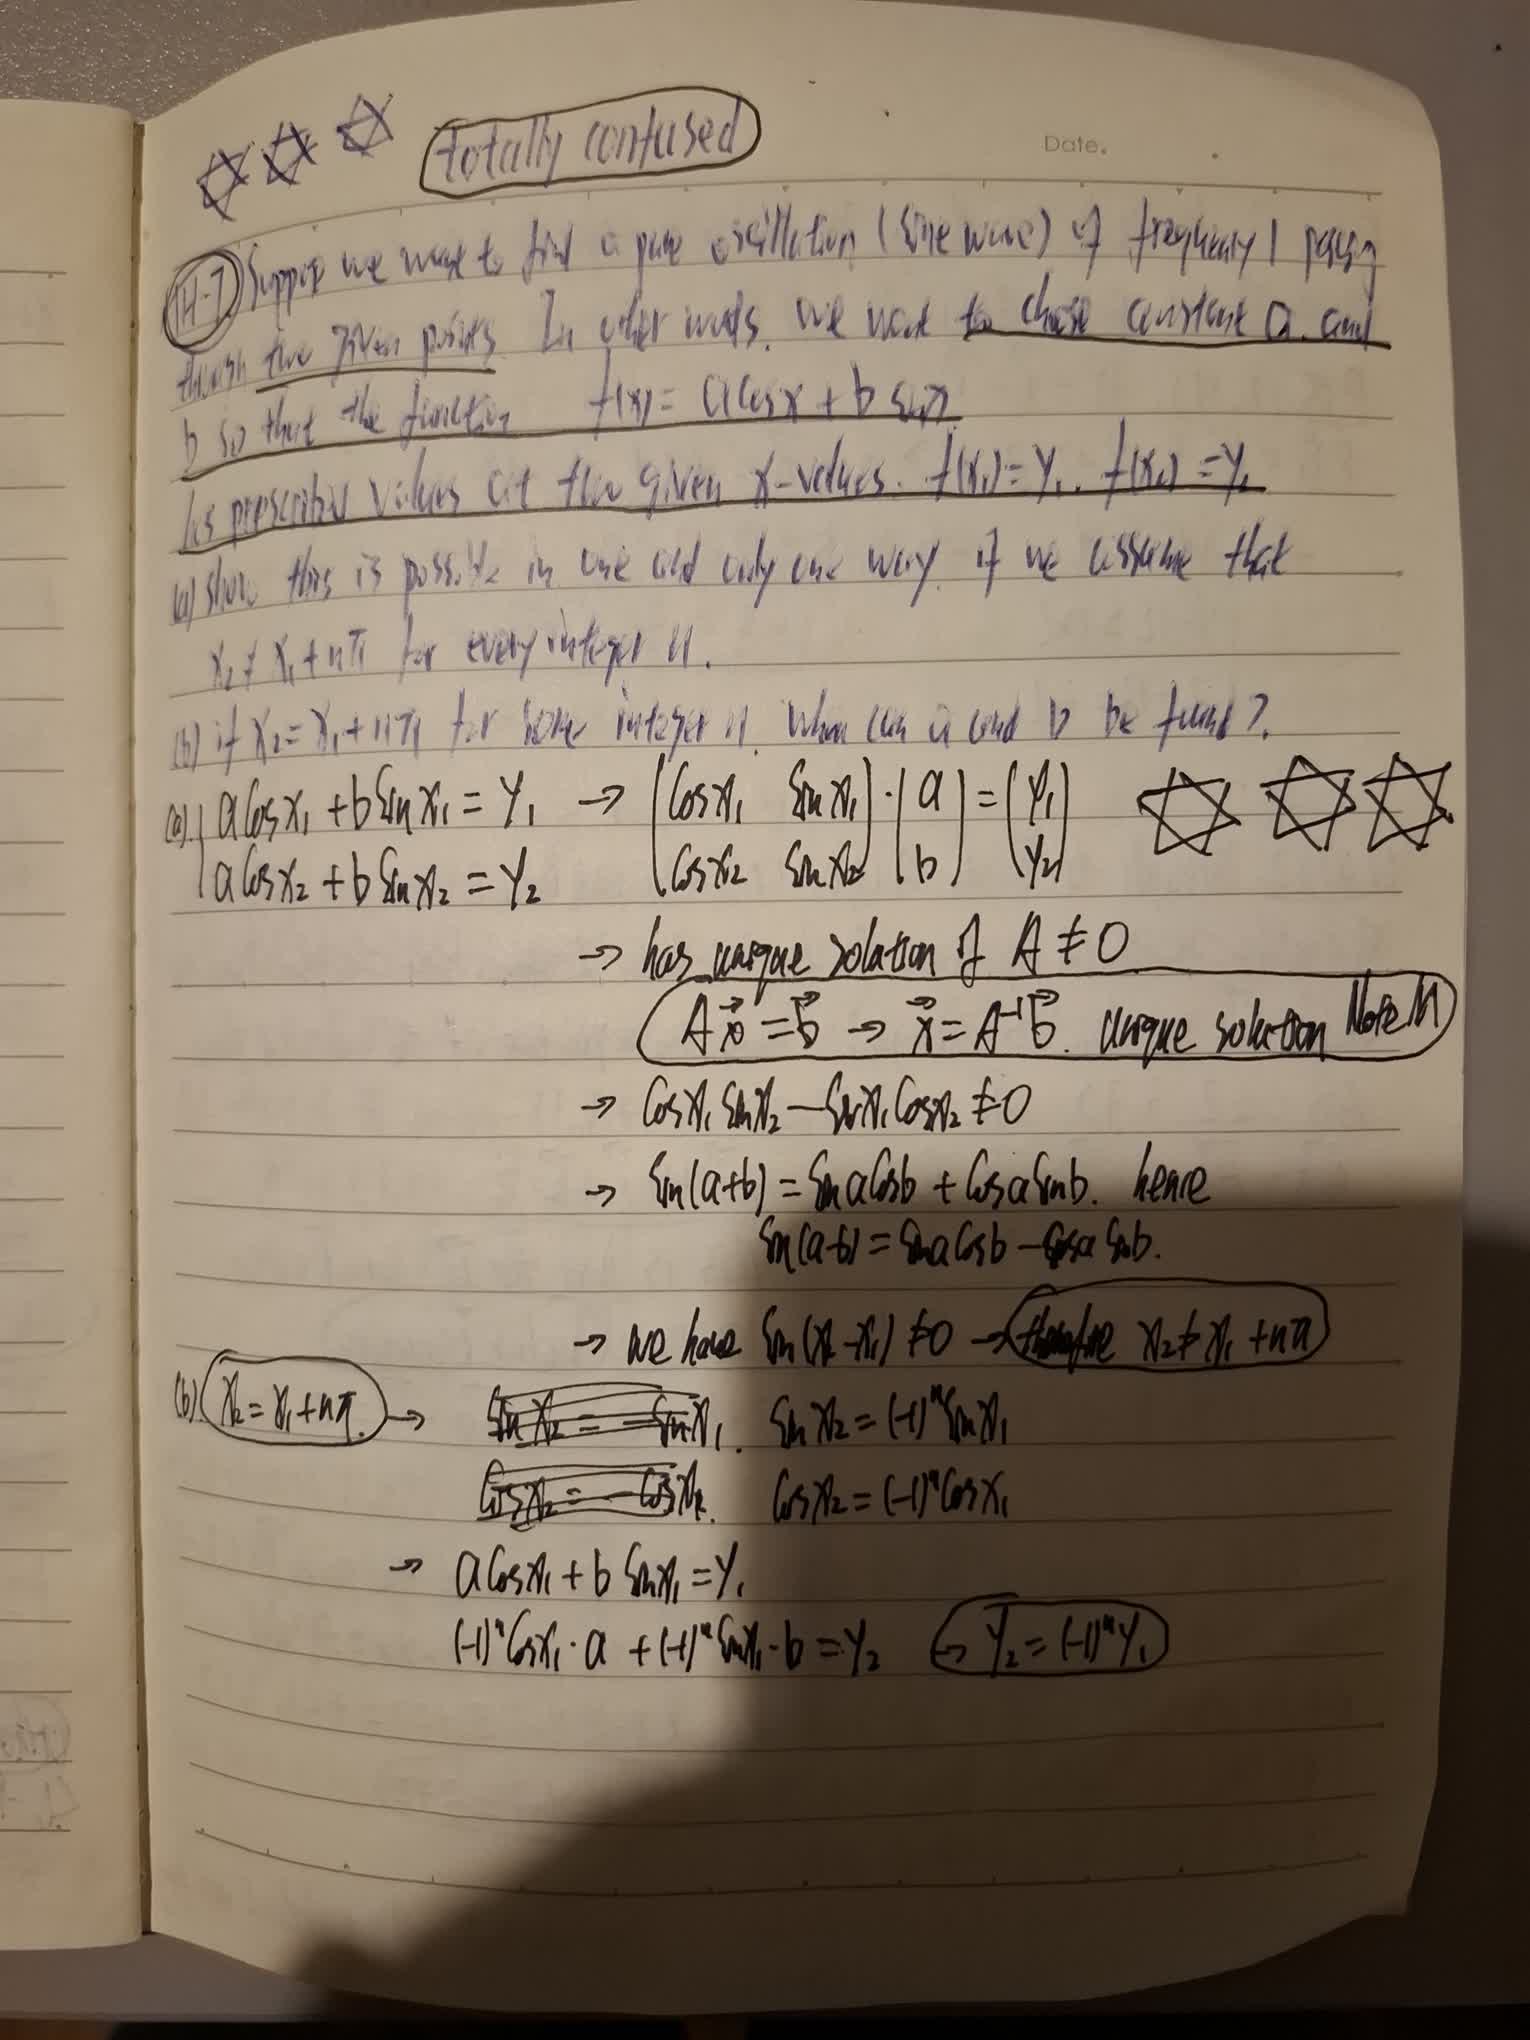 totally confused
Date.
1H-7 Suppose we want to find a pure oscillation (sine wave) of frequency 1 passing
through two given points. In other words, we want to choose constant a and
b so that the function f(x) = a cos x + b sin x
has prescribed values at two given x-values. f(x₁) = y₁, f(x₂) = y₂
(a) show this is possible in one and only one way, if we assume that
x₂ ≠ x₁ + nπ for every integer n.
(b) if x₂ = x₁ + nπ for some integer n, when can a and b be found?
(a) a cos x₁ + b sin x₁ = y₁ → (cos x₁ sin x₁) · (a) = (y₁)
a cos x₂ + b sin x₂ = y₂ (cos x₂ sin x₂) (b) (y₂)
→ has unique solution if A ≠ 0
A x⃗ = b⃗ → x⃗ = A⁻¹ b⃗. unique solution
→ cos x₁ sin x₂ − sin x₁ cos x₂ ≠ 0
→ sin(a+b) = sin a cos b + cos a sin b. hence
sin(a-b) = sin a cos b − cos a sin b.
→ we have sin(x₂ − x₁) ≠ 0 → therefore x₂ ≠ x₁ + nπ
(b) x₂ = x₁ + nπ. → sin x₂ = − sin x₁. sin x₂ = (-1)ⁿ sin x₁
cos x₂ = − cos x₂. cos x₂ = (-1)ⁿ cos x₁
→ a cos x₁ + b sin x₁ = y₁
(-1)ⁿ cos x₁ · a + (-1)ⁿ sin x₁ · b = y₂ → y₂ = (-1)ⁿ y₁